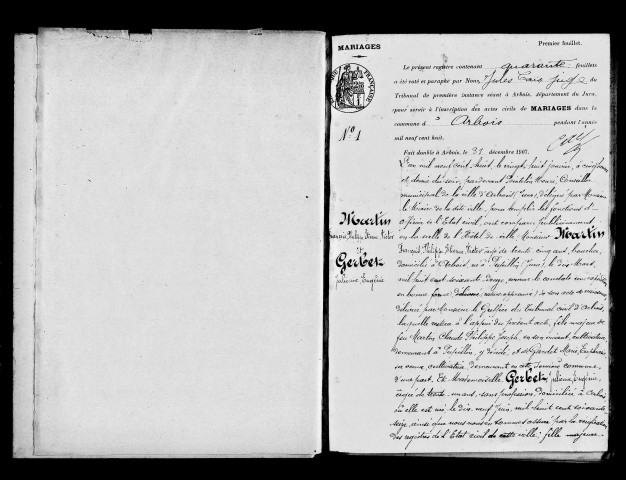 MARIAGES
Premier feuillet.
Le présent registre contenant quarante feuillets
a été coté et paraphé par Nous, Jules juge du
Tribunal de première instance séant à Arbois, département du Jura,
pour servir à l'inscription des actes civils de MARIAGES dans la
commune d'Arbois pendant l'année
mil neuf cent huit.
Fait double à Arbois, le 31 décembre 1907.
N° 1
L'an mil neuf cent huit, le vingt huit janvier, à cinq heures
et demie du soir, pardevant Nous, Conseiller
municipal de la ville d'Arbois (Jura), délégué par Monsieur
le Maire de la dite ville, pour remplir les fonctions d'
officier de l'Etat civil, ont comparu publiquement,
en la salle de l'Hôtel de ville Monsieur Martin
François, Philippe, Victor, âgé de trente cinq ans,
domicilié à Arbois, né à Pupillin (Jura), le dix Mars
mil huit cent soixante douze,
en bonne forme,
délivrée par Monsieur le Greffier du Tribunal civil d'Arbois,
laquelle restera à l'appui du présent acte, fils majeur de
feu Martin Claude Philippe Joseph, en son vivant, cultivateur,
demeurant à Pupillin, y décédé, et de Gandet Marie
sa veuve, cultivatrice, demeurant en cette commune
d'une part. Et Mademoiselle Gerbet, Juliene, Eugénie,
âgée de trente un ans, sans profession, domiciliée à Arbois
où elle est née le dix neuf Juin, mil huit cent soixante
seize, ainsi que nous nous en sommes assuré par la vérification
des registres de l'Etat civil de cette ville; fille majeure
Martin
François, Philippe, Victor
&
Gerbet
Juliene Eugénie